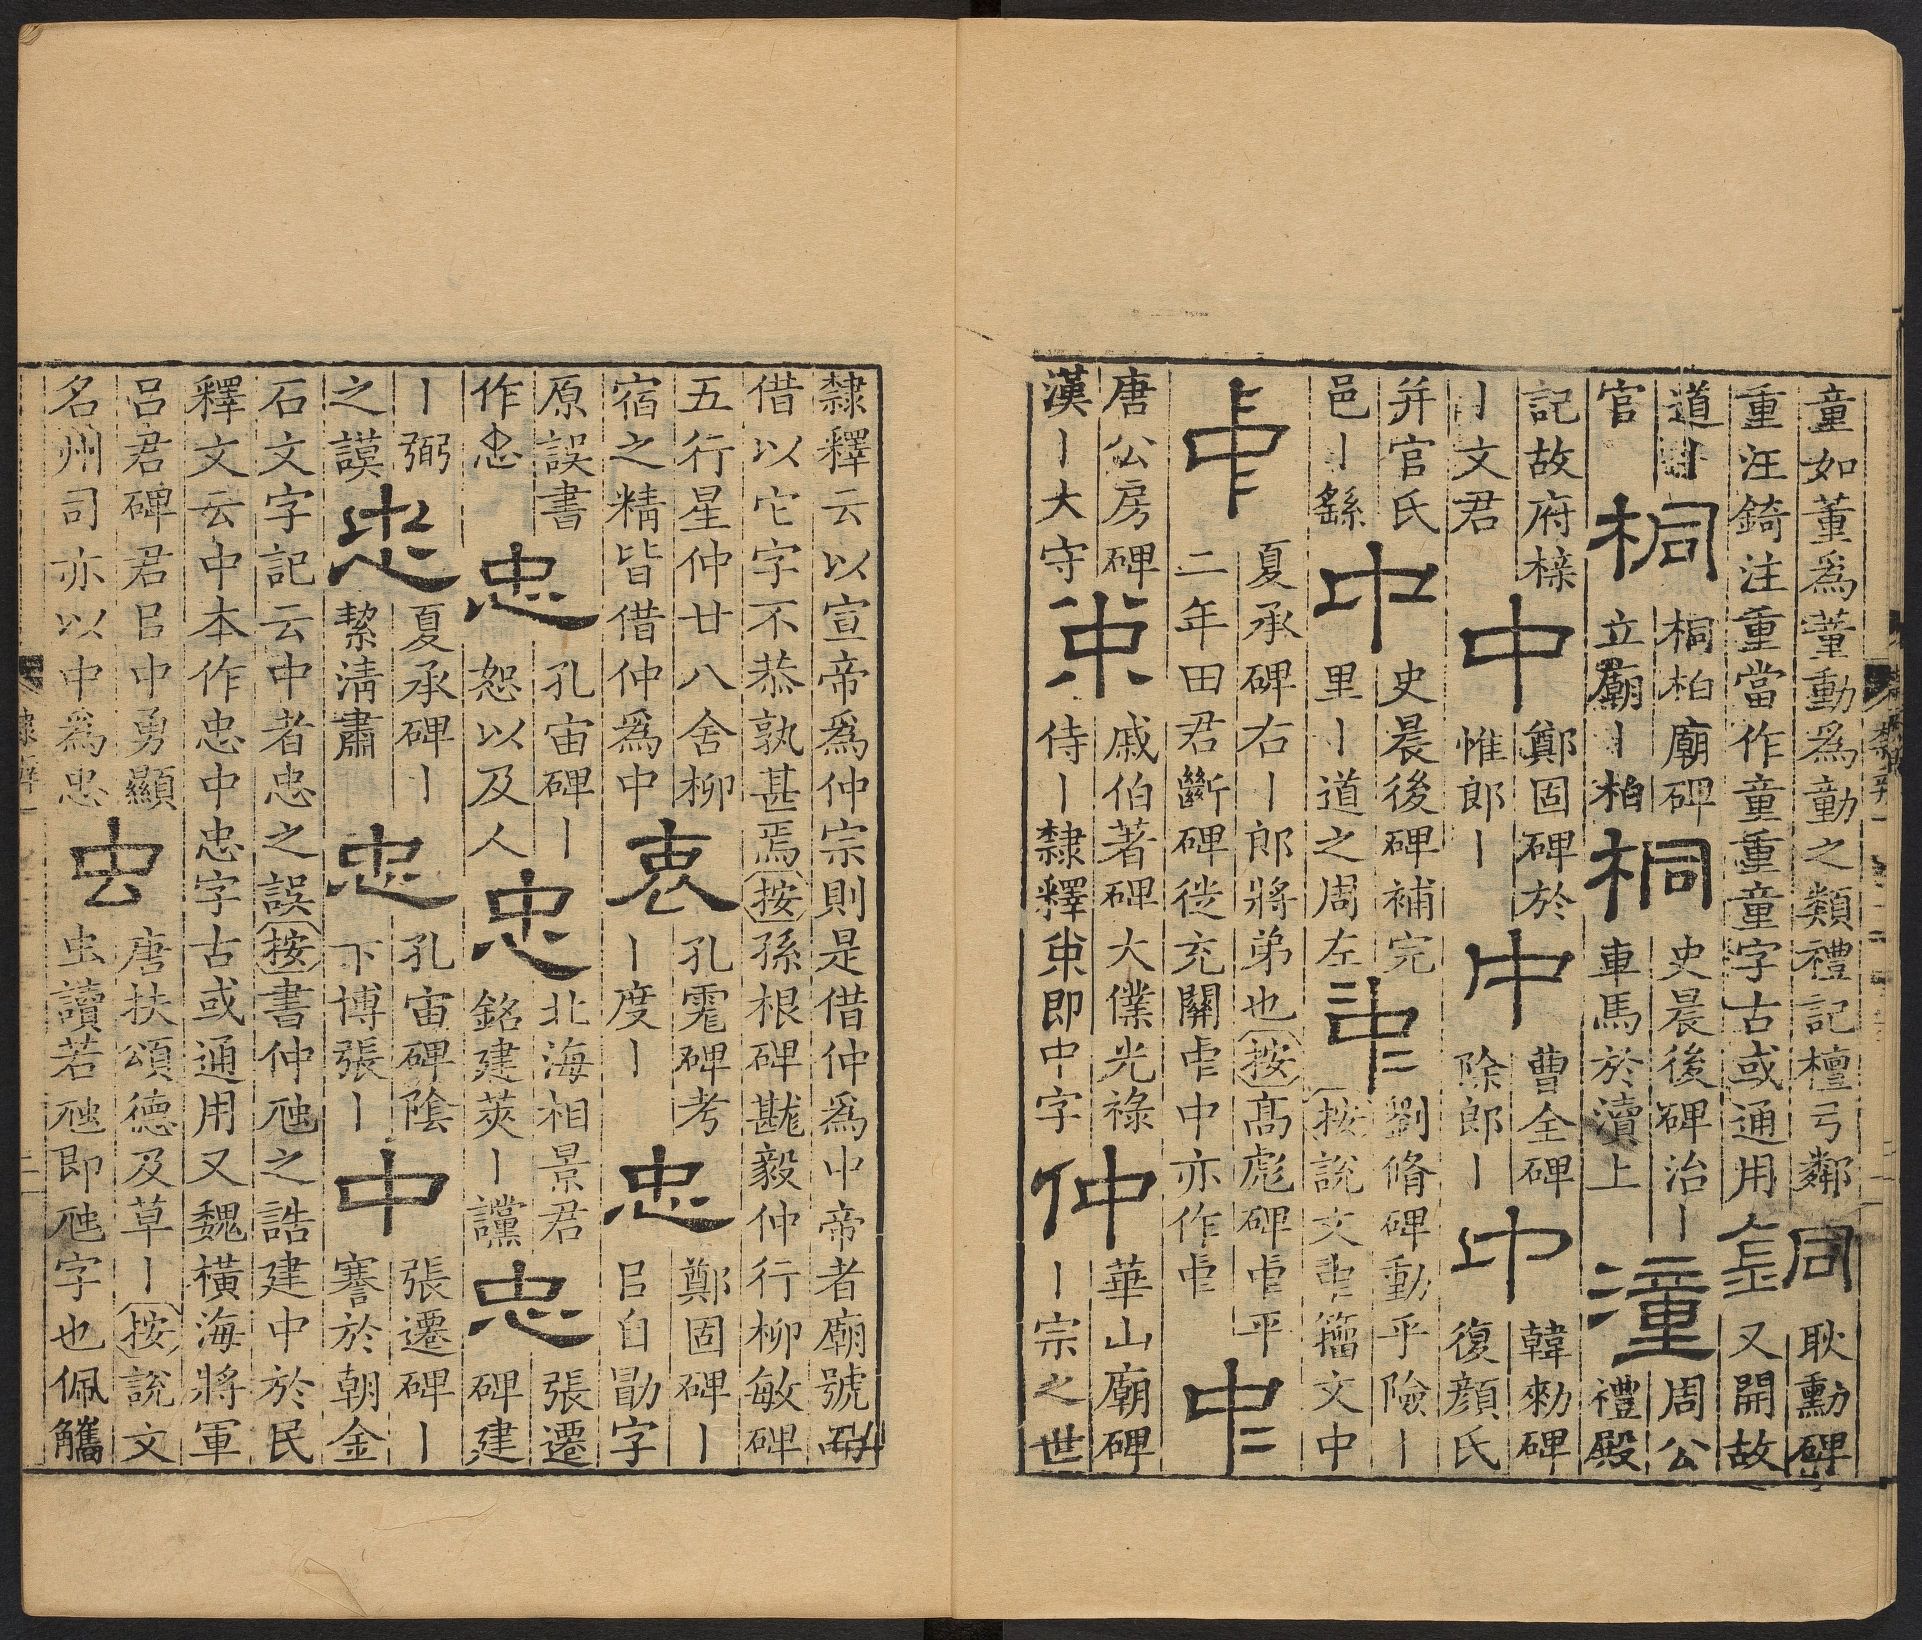 童如董爲蕫動爲勭之類禮記檀弓鄰
重汪錡注重當作童重童字古或通用
耿勳碑
又開故
道丨
官
桐
桐柏廟碑
立廟丨柏
桐
史晨後碑治丨
車馬於瀆上
潼
周公
禮殿
記故府梓
丨文君
中
鄭固碑於
惟郎丨
中
曹全碑
除郎丨
中
韓勑碑
復顏氏
并官氏
邑丨繇
中
史晨後碑補完
里丨道之周左
𠁧
劉脩碑動乎險丨
按說文𠁧籀文中
𠁩
夏承碑右丨郎將弟也按高彪碑𠁩平
二年田君斷碑從充關𠁩中亦作𠁩
𠁧
唐公房碑
漢丨大守
𠂈
戚伯著碑大僕光祿
侍丨隸釋𠂈即中字
仲
華山廟碑
丨宗之世
隸釋云以宣帝爲仲宗則是借仲爲中帝者廟號而
借以它字不恭孰甚焉按孫根碑戡毅仲行柳敏碑
五行星仲廿八舍柳
宿之精皆借仲爲中
衷
孔霓碑考
丨度丨
忠
鄭固碑丨
㠯自勖字
原誤書
作忠
忠
孔宙碑丨
恕以及人
忠
北海相景君
銘建筴丨讜
忠
張遷
碑建
丨弼
之謨
忠
夏承碑丨
絜淸肅
忠
孔宙碑陰
下博張丨
中
張遷碑丨
謇於朝金
石文字記云中者忠之誤按書仲虺之誥建中於民
釋文云中本作忠中忠字古或通用又魏橫海將軍
呂君碑君㠯中勇顯
名州司亦以中爲忠
虫
唐扶頌德及草丨按說文
虫讀若虺即虺字也佩觿